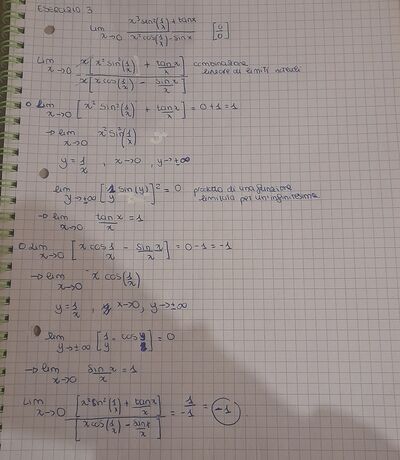 ESERCIZIO 3
lim x→0 x³sin²(1/x)+tanx / x²cos(1/x)-sinx [0/0]
Lim x→0 x[x²sin²(1/x) + tanx/x] / x[xcos(1/x) - sinx/x] combinazione lineare di limiti notevoli
○ lim x→0 [x² sin²(1/x) + tanx/x] = 0+1=1
→ lim x→0 x²sin²(1/x)
y = 1/x , x→0 , y→±∞
lim y→±∞ [1/y sin(y)]² = 0 prodotto di una funzione limitata per un'infinitesima
→ lim x→0 tanx/x = 1
○ lim x→0 [x cos 1/x - sinx/x] = 0-1=-1
→ lim x→0 x cos(1/x)
y = 1/x , x→0, y→±∞
lim y→±∞ [1/y · cos y] = 0
→ lim x→0 sinx/x = 1
Lim x→0 [x²sin²(1/x) + tanx/x] / [xcos(1/x) - sinx/x] = 1/-1 = -1